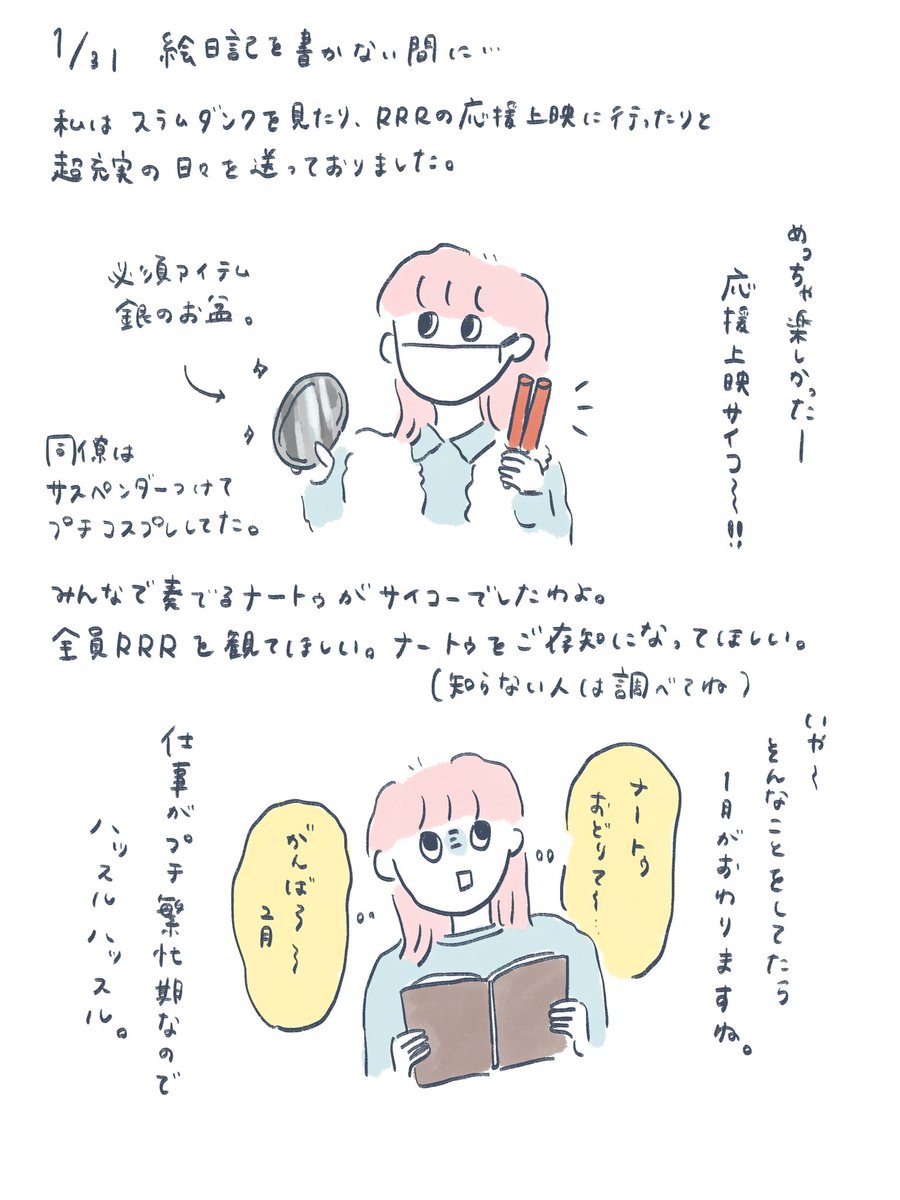 1/31 絵日記を書かない間に…
私はスラムダンクを見たり、RRRの応援上映に行ったりと
超充実の日々を送っておりました。
めっちゃ楽しかったー
応援上映サイコ〜!!
必須アイテム
銀のお盆。
同僚は
サスペンダーつけて
プチコスプレしてた。
みんなで奏でるナートゥがサイコーでしたわよ。
全員RRRを観てほしい。ナートゥをご存知になってほしい。
(知らない人は調べてね)
いや〜
そんなことをしてたら
1月がおわりますね。
ナートゥ
おどりて〜…
がんばろ〜
2月
仕事がプチ繁忙期なので
ハッスルハッスル。